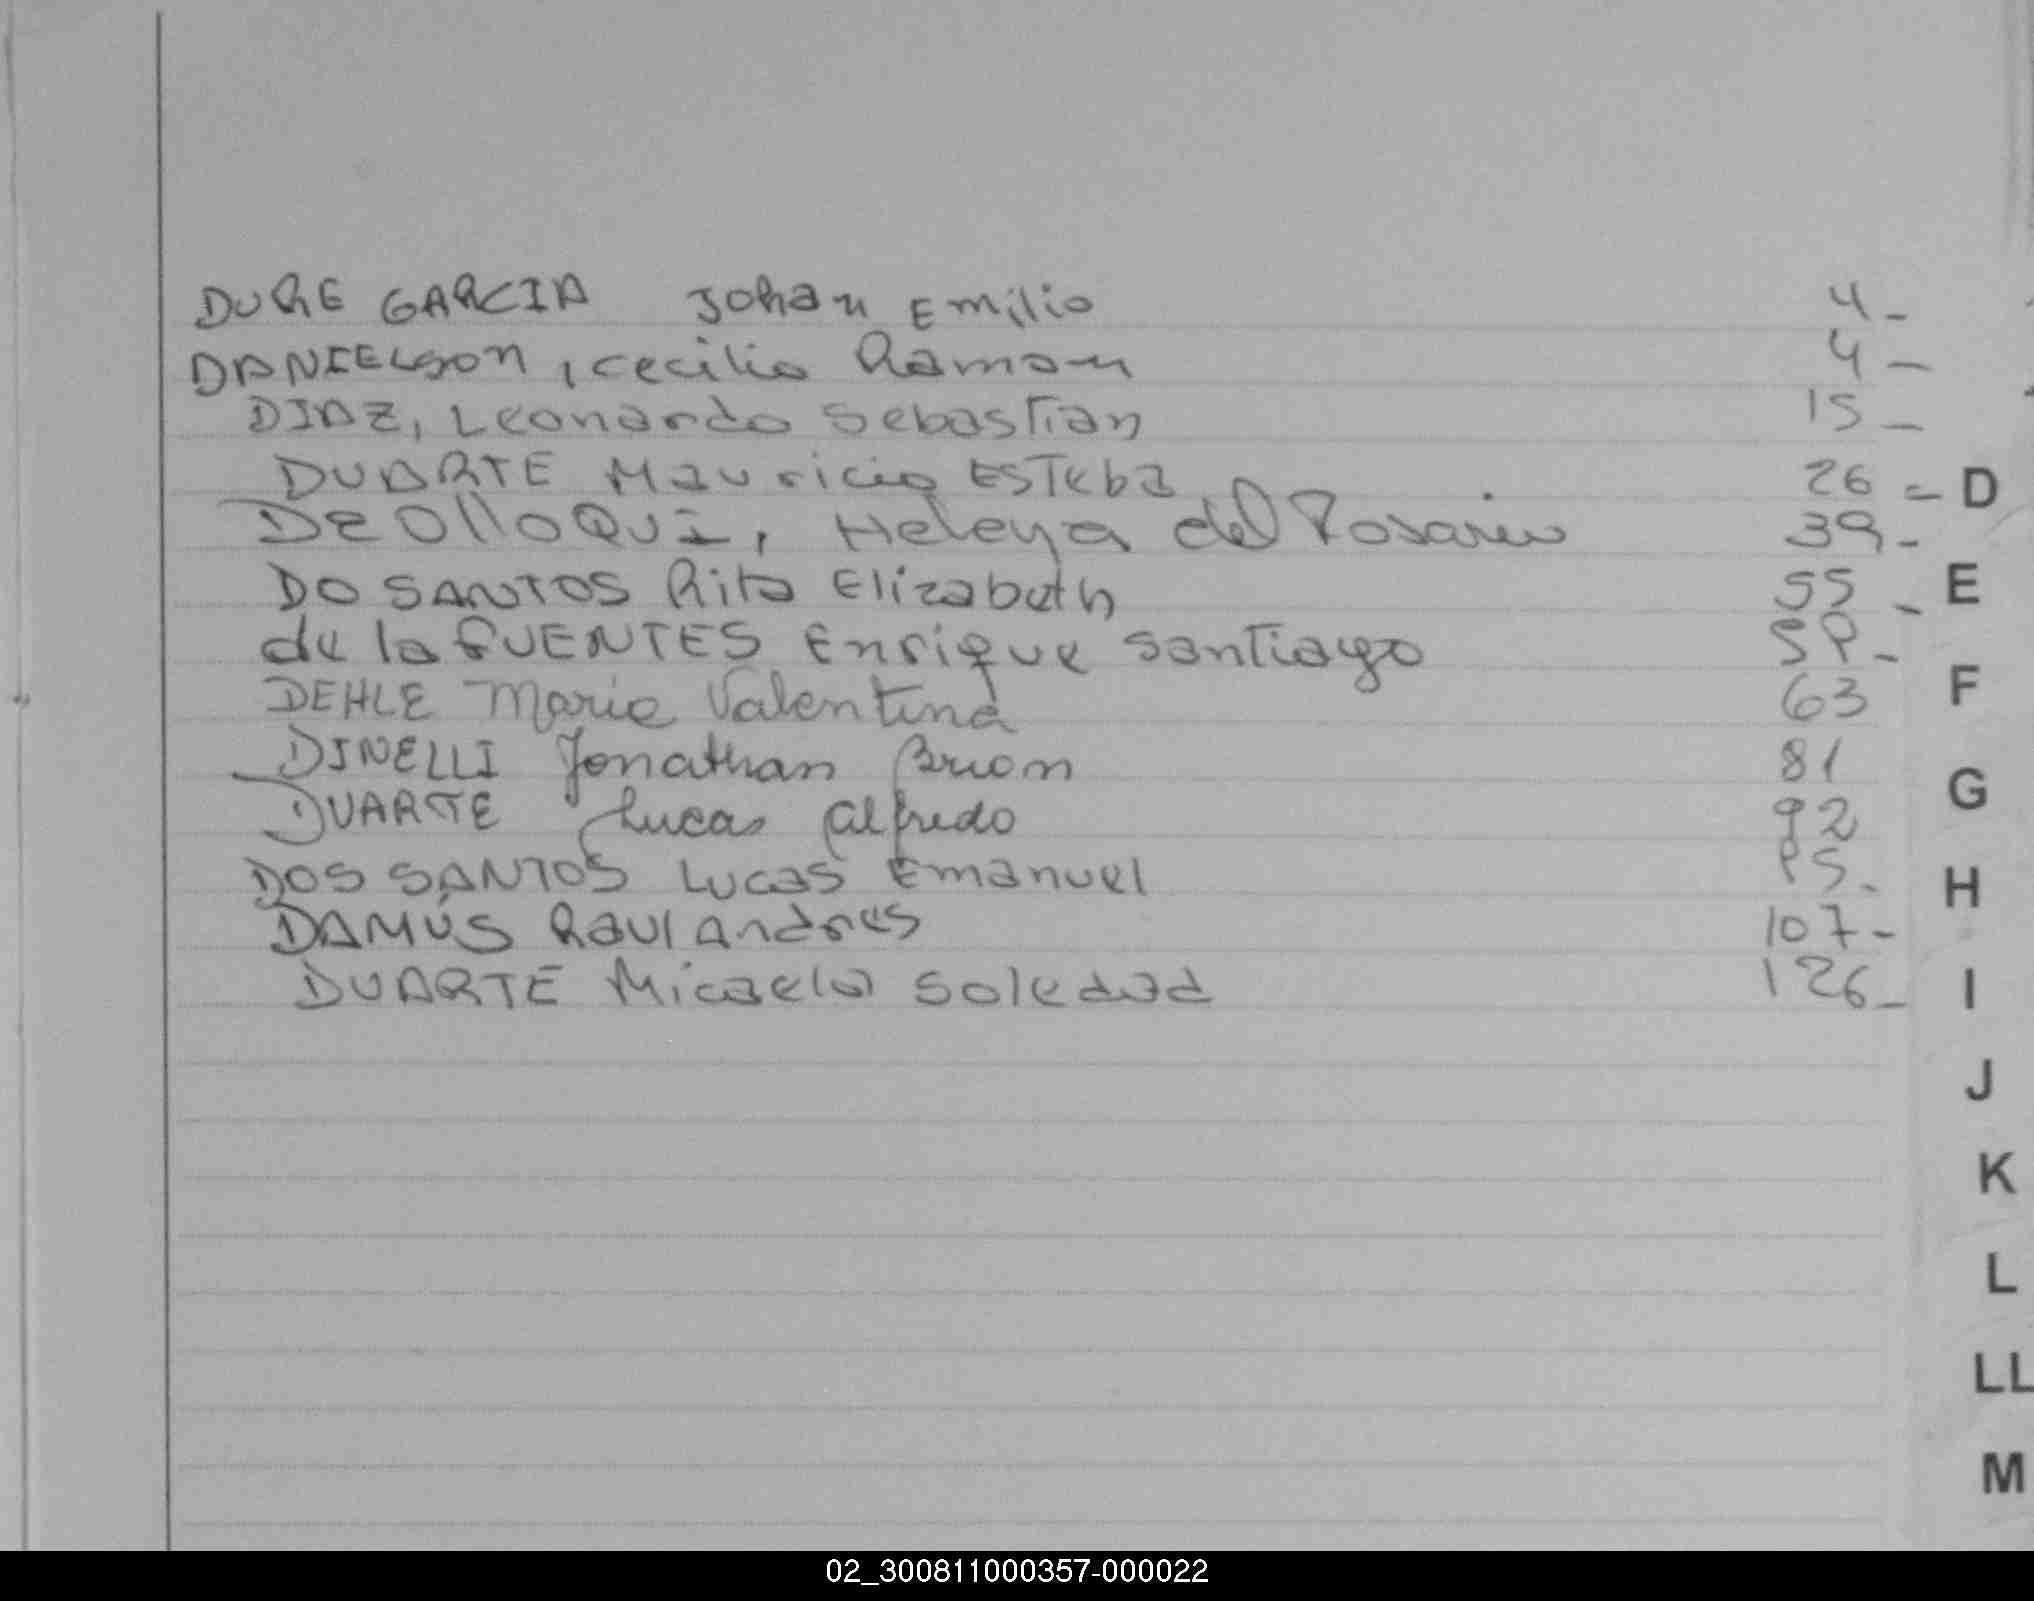 DURE GARCIA Johan Emilio 4 -
DANIELSON, Cecilio Ramon 4 -
DIAZ, Leonardo Sebastian 15 -
DUARTE Mauricio ESTEba 26 - D
DE OlloQUi, Heleya del Rosario 39 -
E
DO SANTOS Rita Elizabeth 55 -
de la FUENTES Enrique Santiago 59 -
F
DEHLE Maria Valentina 63
DINELLI Jonathan Brian 81
G
DUARTE Lucas Alfredo 92
DOS SANTOS Lucas Emanuel 95 -
H
DAMÚS Raul Andres 107 -
DUARTE Micaela Soledad 126 -
I
J
K
L
LL
M
02_300811000357-000022